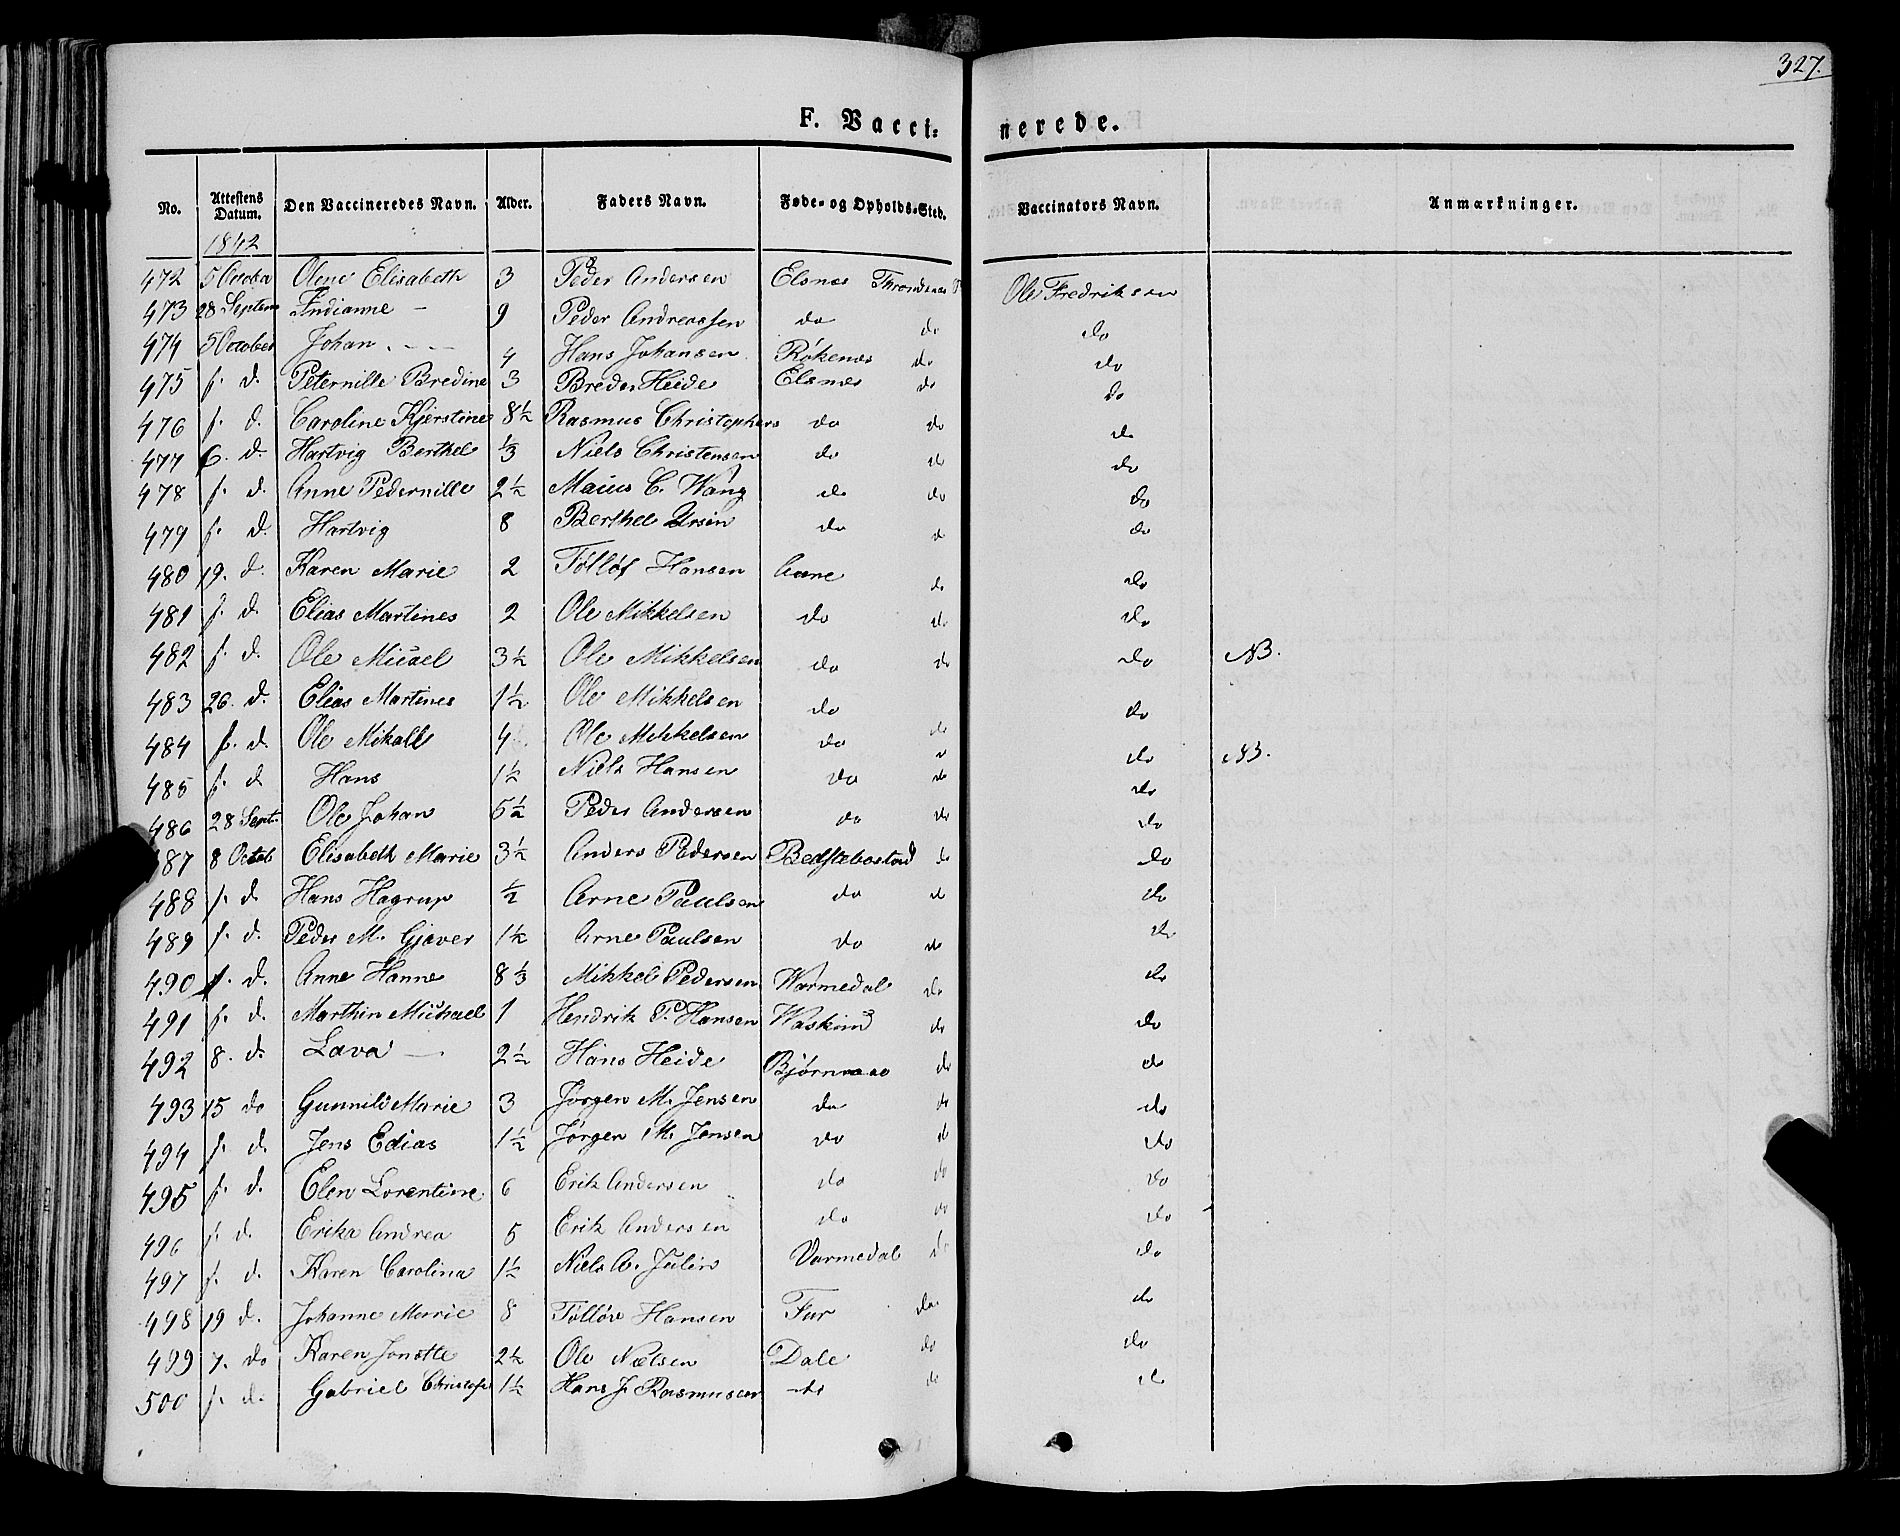 327.
F. Vacci: nerede.
No. Attestens Datum. Den Vaccineredes Navn. Alder. Faders Navn. Føde- og Opholds-Sted. Vaccinators Navn. Anmærkninger.
1842
472 5 October Oline Elisabeth 3 Peder Andersen Elsnes Throndenes Ole Fredriksen
473 28 Septem Indianne - 9 Peder Andreassen do do do
474 5 October Johan - - - 4 Hans Johansen Røkenes do do
475 f. d. Peternille Bredine 3 Breder Heide Elsnes do do
476 f. d. Caroline Kjerstine 8½ Rasmus Christophers do do do
477 6. d. Hartvig Berthel ⅓ Niels Christensen do do do
478 f. d. Anne Pedernille 2½ Maius C. Wang do do do
479 f. d. Hartvig 8 Berthel Ursin do do do
480 19. d. Karen Marie 2 Tølløf Hansen do do
481 f. d. Elias Martines 2 Ole Mikkelsen do do do
482 f. d. Ole Micael 3½ Ole Mikkelsen do do do NB.
483 26. d. Elias Martines 1½ Ole Mikkelsen do do do
484 f. d. Ole Mikall 4 Ole Mikkelsen do do do NB.
485 f. d Hans 1½ Niels Hansen do do do
486 28 Sept. Ole Johan 5½ Peder Andersen do do do
487 8 Octob Elisabeth Marie 3½ Anders Pedersen Bedstebostad do do
488 f. d. Hans Hagrup ½ Arne Paulsen do do do
489 f. d. Peder M. Gjæver 1½ Arne Paulsen do do do
490 f. d. Anne Hanne 8⅓ Mikkel Pedersen Warmedal do do
491 f. d. Marthin Michael 1 Hendrik P. Hansen do do
492 8. d. Lava - 2½ Hans Heide do do
493 15 do Gunnild Marie 3 Jørgen M. Jensen do do do
494 f. d. Jens Edias 1½ Jørgen M. Jensen do do do
495 f. d. Elen Lorentine 6 Erik Andersen do do do
496 f. d. Erika Andrea 5 Erik Andersen do do do
497 f. d. Karen Carolina 1½ Niels A. Julin Varmedal do do
498 19 d. Johanne Marie 8 Tølløv Hansen Fur do do
499 7. do Karen Jonette 2½ Ole Nielsen Dale do do
500 f. d. Gabriel Christofer 1½ Hans J Rasmussen do do do